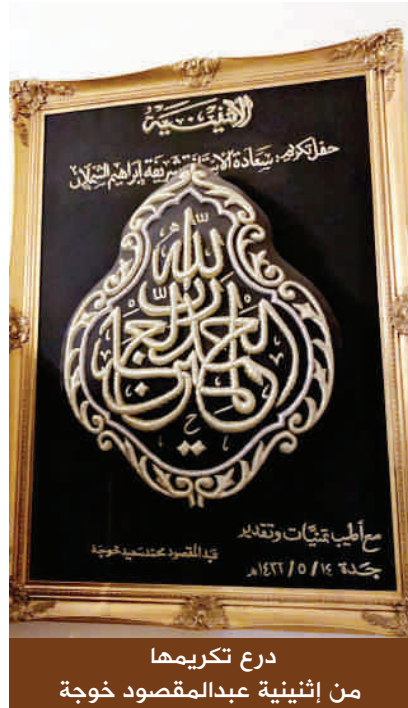 الإثنينية
حفل تكريم: سعادة الأستاذة شريفة إبراهيم الشملان
الحمد لله رب العالمين
مع أطيب تمنيات وتقدير
عبدالمقصود محمد سعيد خوجة
جدة ١٤ / ٥ / ١٤٢٢هـ
درع تكريمها
من إثنينية عبدالمقصود خوجة